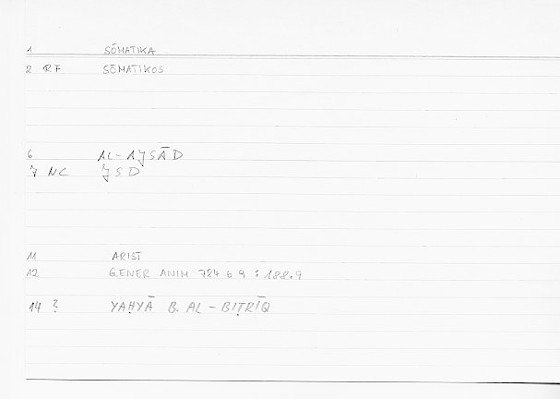 1 SŌMATIKA
2 RF SŌMATIKOS
6 AL-AJSĀD
7 NC JSD
11 ARIST
12 GENER ANIM 784 b 9 : 188.9
14 ? YAḤYĀ B. AL-BIṬRĪQ